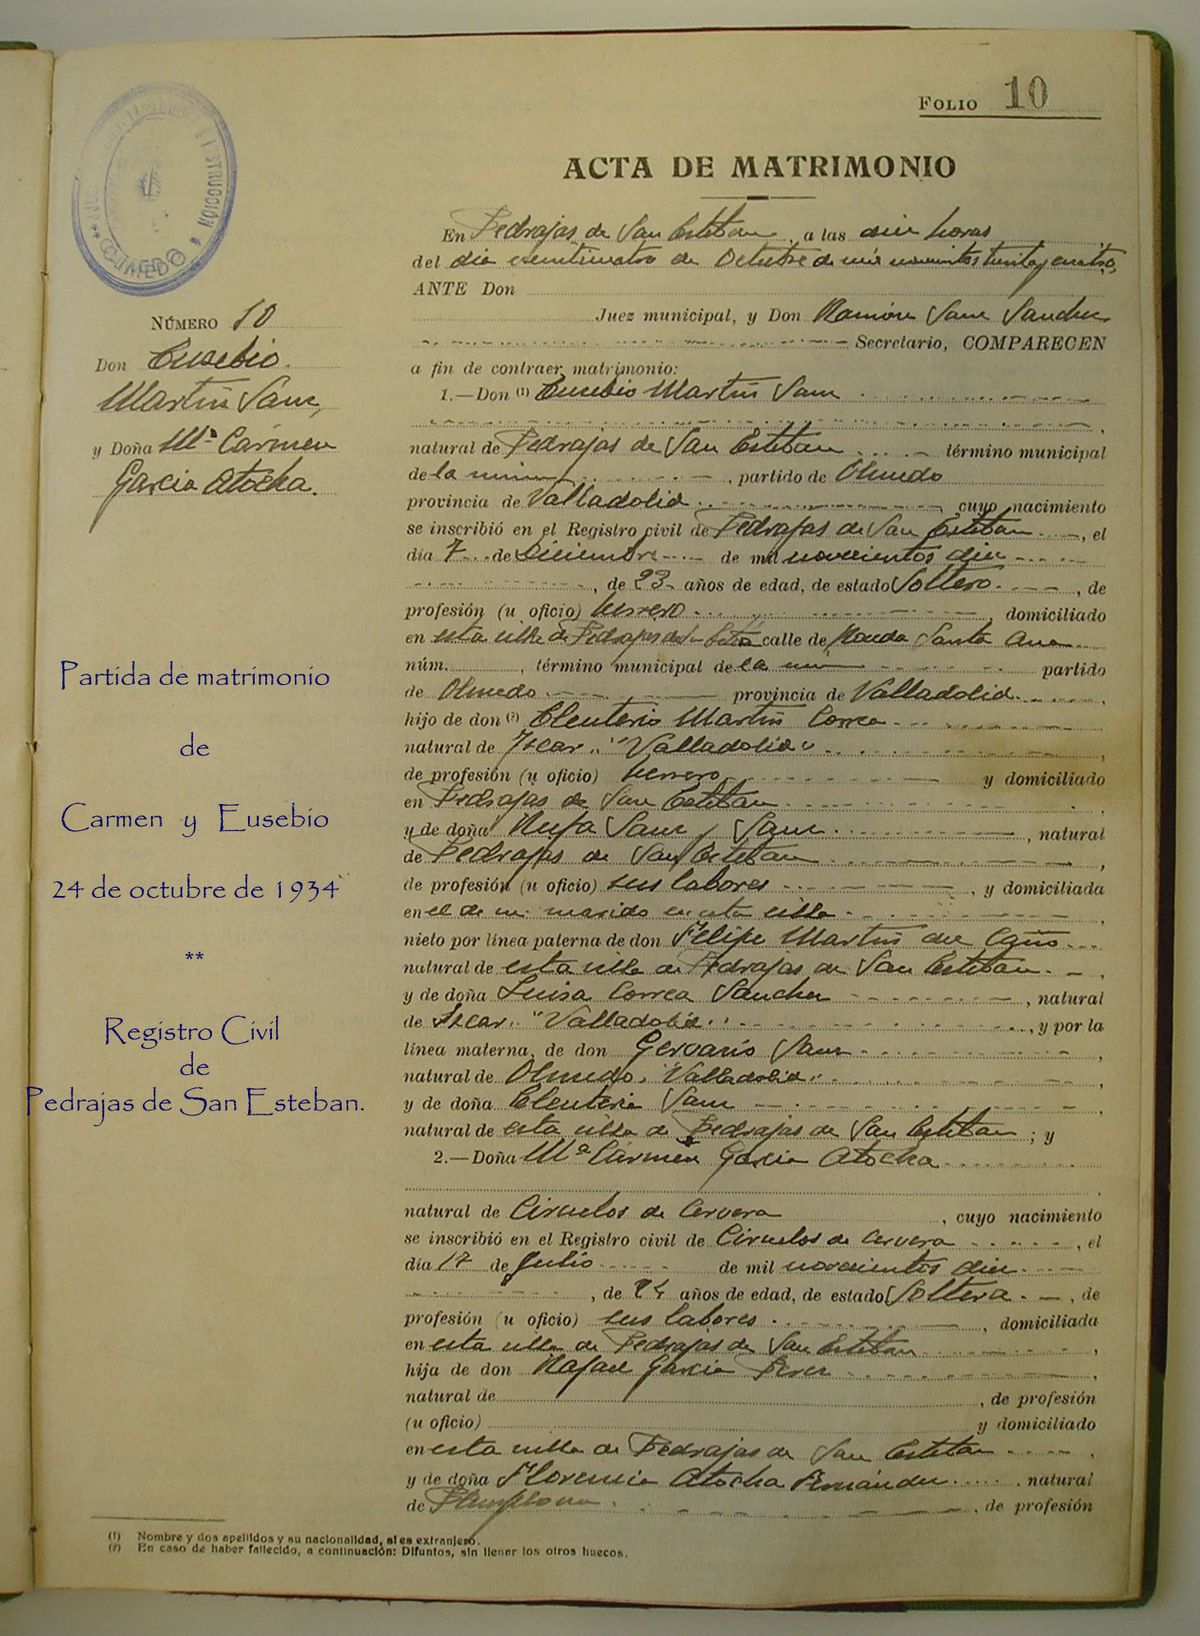 FOLIO 10
ACTA DE MATRIMONIO
INSTRUCCIÓN
OLMEDO
En Pedrajas de San Esteban, a las diez horas
del día veinticuatro de Octubre de mil novecientos treinta y cuatro,
ANTE Don
Juez municipal, y Don Ramón Sanz Sanchez
Secretario, COMPARECEN
a fin de contraer matrimonio:
1.—Don (1) Eusebio Martín Sanz
natural de Pedrajas de San Esteban término municipal
de la misma, partido de Olmedo
provincia de Valladolid, cuyo nacimiento
se inscribió en el Registro civil de Pedrajas de San Esteban, el
día 7 de Diciembre de mil novecientos diez
, de 23 años de edad, de estado Soltero, de
profesión (u oficio) herrero, domiciliado
en esta villa de Pedrajas de San Esteban calle de Ronda Santa Ana
núm. , término municipal de la misma partido
de Olmedo provincia de Valladolid,
hijo de don (2) Eleuterio Martín Correa
natural de Iscar "Valladolid",
de profesión (u oficio) herrero y domiciliado
en Pedrajas de San Esteban
y de doña Rufa Sanz y Sanz, natural
de Pedrajas de San Esteban,
de profesión (u oficio) sus labores, y domiciliada
en el de su marido en esta villa,
nieto por línea paterna de don Felipe Martín del Caño
natural de esta villa de Pedrajas de San Esteban,
y de doña Luisa Correa Sanchez, natural
de Iscar "Valladolid", y por la
línea materna, de don Gervasio Sanz,
natural de Olmedo "Valladolid",
y de doña Eleuteria Sanz,
natural de esta villa de Pedrajas de San Esteban; y
2.—Doña Mª Cármen Garcia Atocha
natural de Ciruelos de Cervera, cuyo nacimiento
se inscribió en el Registro civil de Ciruelos de Cervera, el
día 17 de Julio de mil novecientos diez
, de 24 años de edad, de estado Soltera, de
profesión (u oficio) sus labores, domiciliada
en esta villa de Pedrajas de San Esteban,
hija de don Rafael Garcia Perez,
natural de , de profesión
(u oficio) y domiciliado
en esta villa de Pedrajas de San Esteban,
y de doña Florencia Atocha Fernández, natural
de Pamplona, de profesión
NÚMERO 10
Don Eusebio
Martín Sanz,
y Doña Mª Cármen
Garcia Atocha.
Partida de matrimonio
de
Carmen y Eusebio
24 de octubre de 1934
**
Registro Civil
de
Pedrajas de San Esteban.
(1) Nombre y dos apellidos y su nacionalidad, si es extranjero.
(2) En caso de haber fallecido, a continuación: Difuntos, sin llenar los otros huecos.